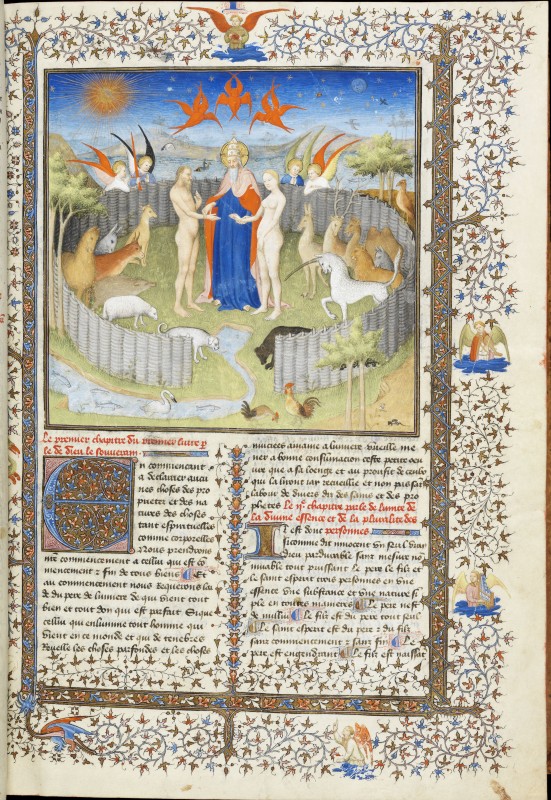 Le premier chapitre du premier livre p
le de dieu le souverain
En commencant
a declairer aucu
nes choses des pro
prietez et des na
tures des choses
tant espirituelles
comme corporelles
Nous prendrons
commencement a cellui qui est co
mencement et fin de tous biens Et
au commencement nous requerons lai
de du pere de lumiere de qui vient tout
bien et tout don qui est parfait Si que
cellui qui enlumine tout homme qui
vient en ce monde et qui de tenebres
revelle les choses parfondes et les choses
mucees amaine a lumiere vueille me
ner a bonne consummacion ceste petite euv
ure que a sa loenge et au profit de ceulx
qui la liront jay recueillie et non pas sans
labour de divers diz des sains et des pro
phetes Le ije chapitre parle de lunite de
la divine essence et de la pluralite des
personnes
Il est donc
si comme dit innocent un seul vray
dieu pardurable sans mesure no
muable tout puissant Le pere le filz et
le saint esperit trois personnes en une
essence une substance et une nature si
ple en toutes manieres Le pere nest
de nullui Le filz est du pere tout seul
Le saint esperit est du pere et du filz
sans commencement et sans fin Le
pere est engendrant Le filz est naissat